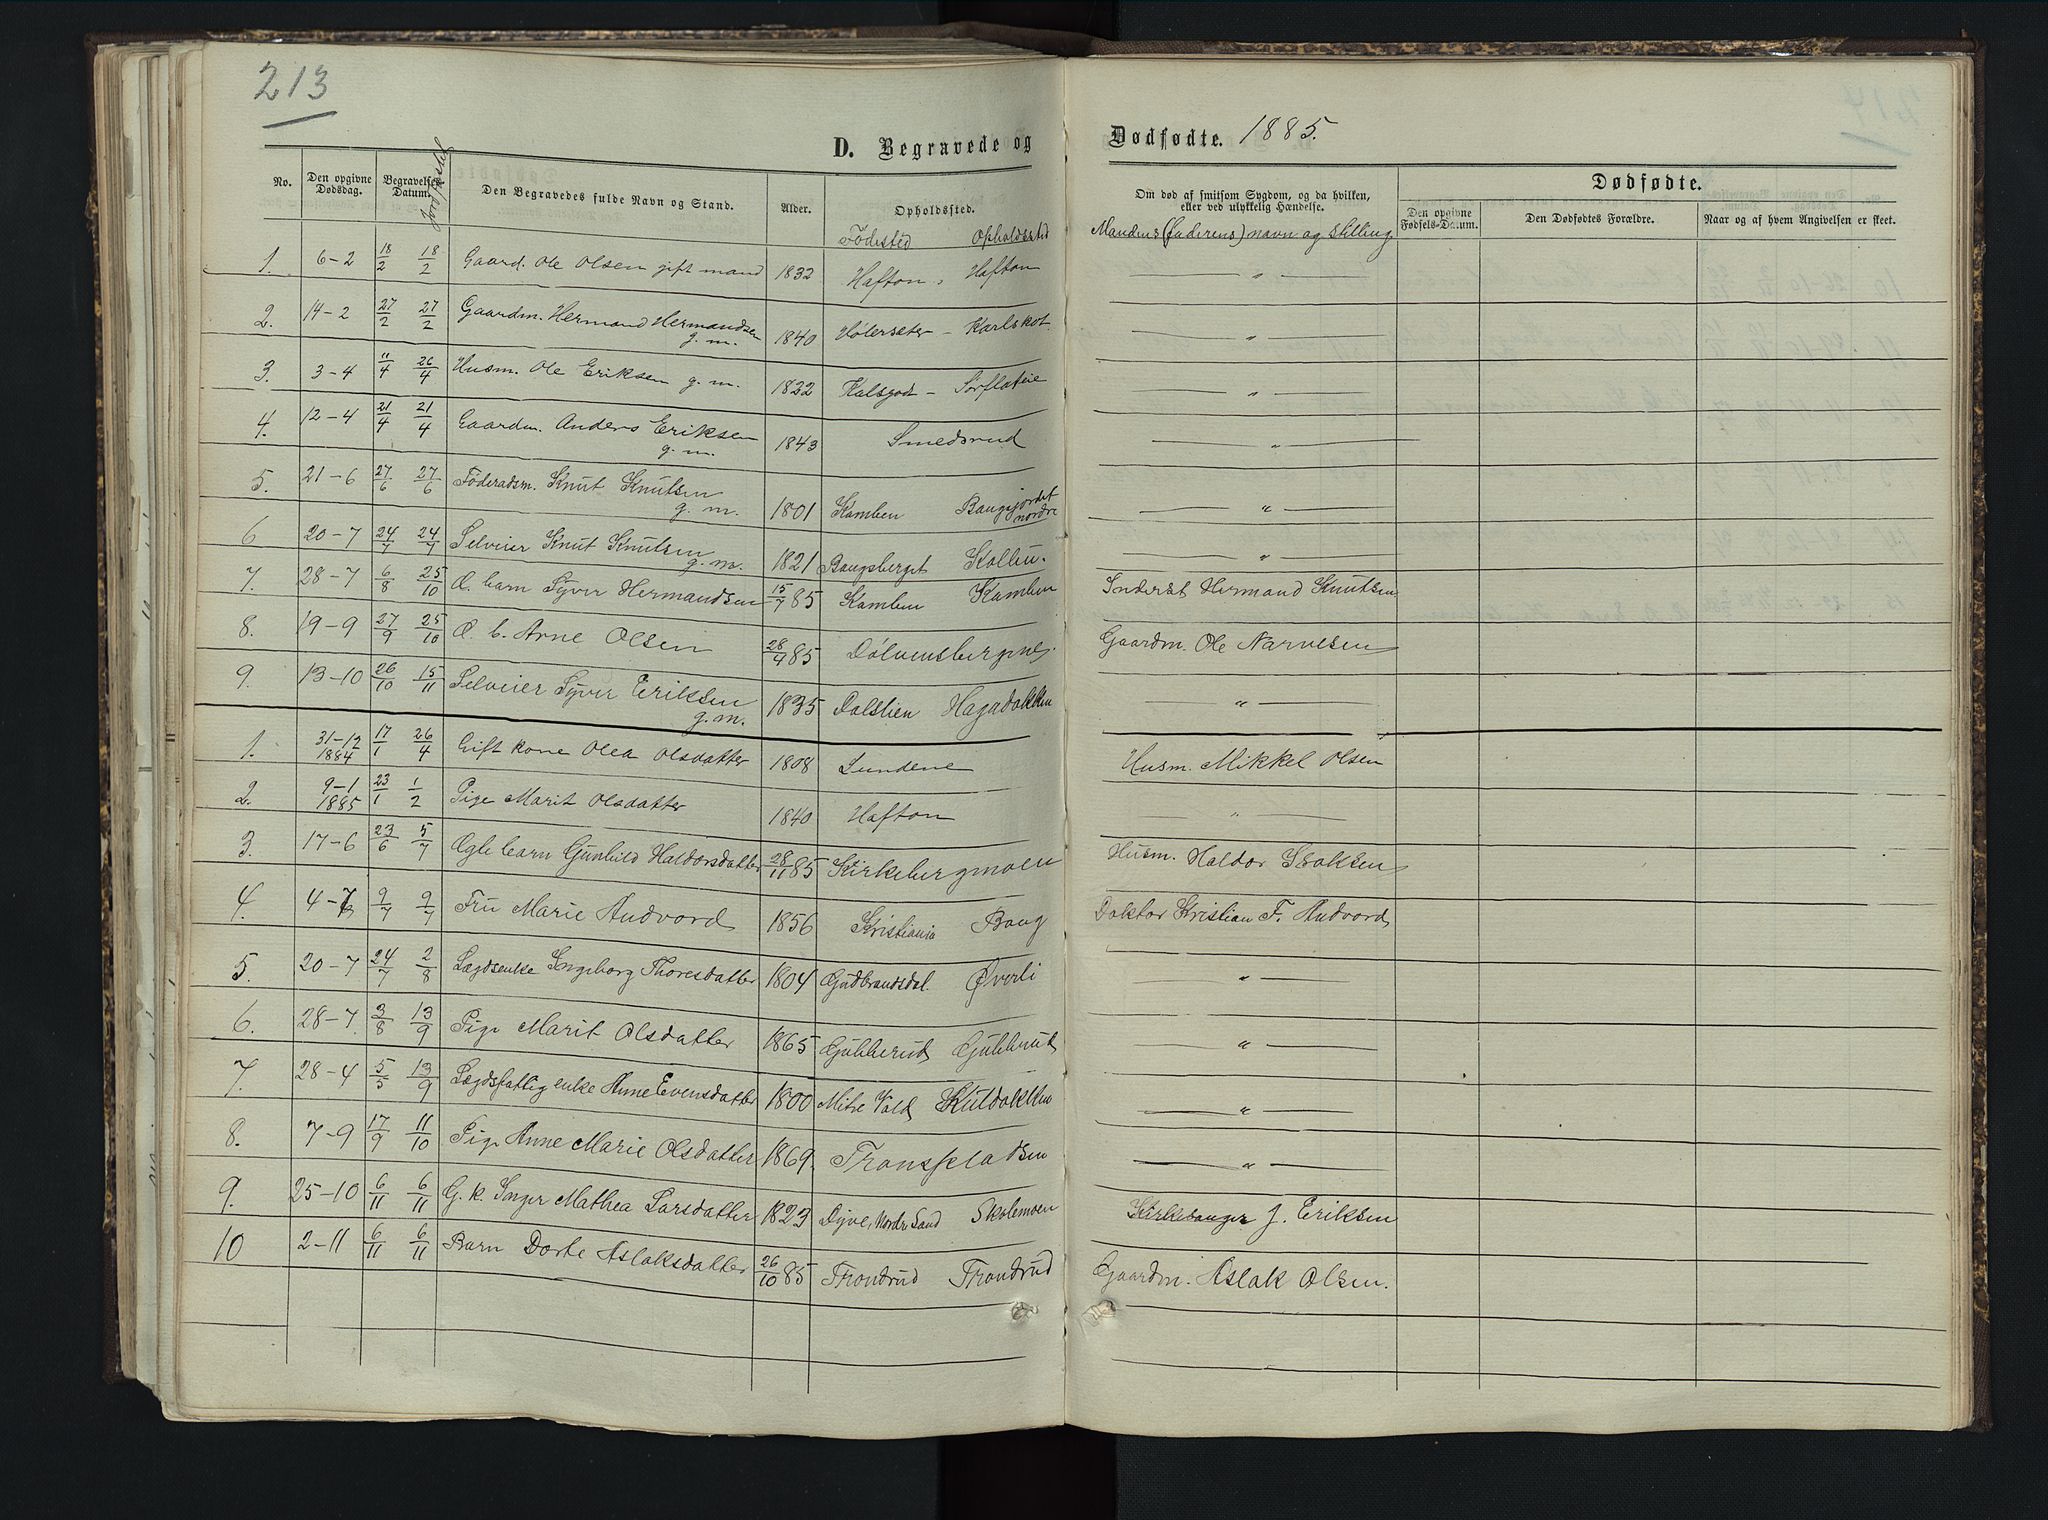 213
D. Begravede og Dødfødte. 1885.
No. Den opgivne Dødsdag. Begravelses Datum. Jordfæstet Den Begravedes fulde Navn og Stand. Alder. Opholdssted. Om død af smitsom Sygdom, og da hvilken, eller ved ulykkelig Hændelse. Dødfødte.
Den opgivne Fødsels-Datum. Den Dødfødtes Forældre. Naar og af hvem Angivelsen er skeet.
Fødested Opholdssted Mandens (faderens) navn og stilling
1. 6-2 18/2 18/2 Gaard. Ole Olsen gift mand 1832 Hafton, Hafton — " —
2. 14-2 27/2 27/2 Gaardm. Hermand Hermandsen g. m. 1840 Hølersæter - Karlskot — " —
3. 3-4 11/4 26/4 Husm. Ole Eriksen g. m. 1832 - Sørflateie — " —
4. 12-4 21/4 21/4 Gaardm. Anders Eriksen g. m. 1843 Smedsrud — " —
5. 21-6 27/6 27/6 Føderaadsm. Knut Knutsen g. m. 1801 Kamben Baugsjordet nordre — " —
6 20-7 24/7 24/7 Selveier Knut Knutsen g. m. 1821 Baugsberget Kolbu. — " —
7. 28-7 6/8 25/10 Æ. barn Syver Hermandsen 15/7 85 Kamben Kamben Inderst Hermand Knutsen
8. 19-9 27/9 25/10 Æ. b. Arne Olsen 28/9 85 Gaardm. Ole Narvesen
9. 13-10 26/10 15/11 Selveier Syver Eriksen g. m. 1835 Dalslien Hagadokken — " —
1. 31-12 1884 17/1 26/4 Gift kone Olea Olsdatter 1808 Lundene Husm. Mikkel Olsen
2. 9-1 1885 23/1 1/2 Pige Marit Olsdatter 1840 Hafton — " —
3. 17-6 23/6 5/7 Ægte barn Gunhild Haldorsdatter 28/11 85 Kirkebergmoen Husm. Haldor Isaksen
4. 4-7 9/7 9/7 Fru Marie Andvord 1856 Kristiania Baug Doktor Kristian F. Andvord
5. 20-7 24/7 2/8 Lægdsenke Ingeborg Thoresdatter 1804 Gudbrandsdal. Øverli — " —
6. 28-7 3/8 13/9 Pige Marit Olsdatter 1865 Gubberud Gubberud — " —
7. 28-4 5/5 13/9 Lægdsfattig enke Anne Evensdatter 1800 Kuldokken — " —
8. 7-9 17/9 11/10 Pige Anne Marie Olsdatter 1869. — " —
9. 25-10 6/11 6/11 G. k. Inger Mathea Larsdatter 1823 Dyve, Nordr Land Skolemoen Kirkesanger J. Eriksen
10 2-11 6/11 6/11 Barn Dorte Aslaksdatter 26/10 85 Trondrud Trondrud Gaardm. Aslak Olsen.